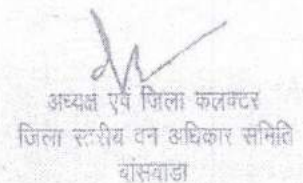 अध्यक्ष एवं जिला कलक्टर
जिला स्तरीय वन अधिकार समिति
बांसवाडा